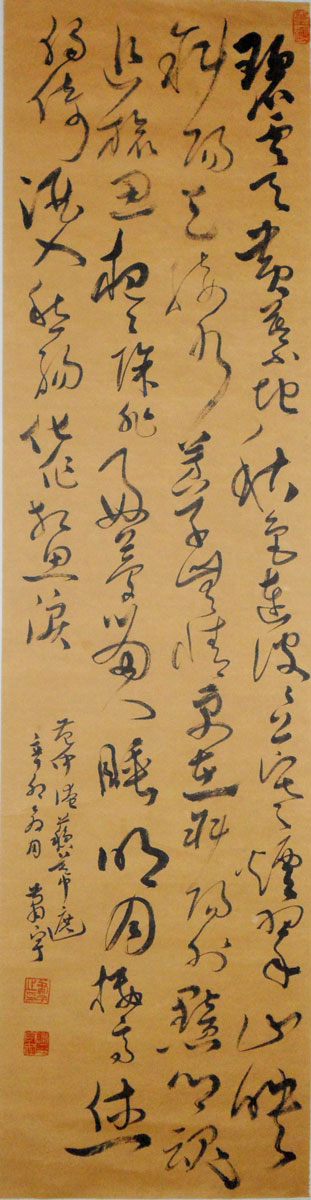 碧雲天黃葉地秋色連波〻上寒煙翠山映
斜陽天接水芳草無情更在斜陽外黯鄉魂
追旅思夜〻除非好夢留人睡明月樓高休
獨倚酒入愁腸化作相思淚
范仲淹蘇幕遮
辛卯月蕭宇